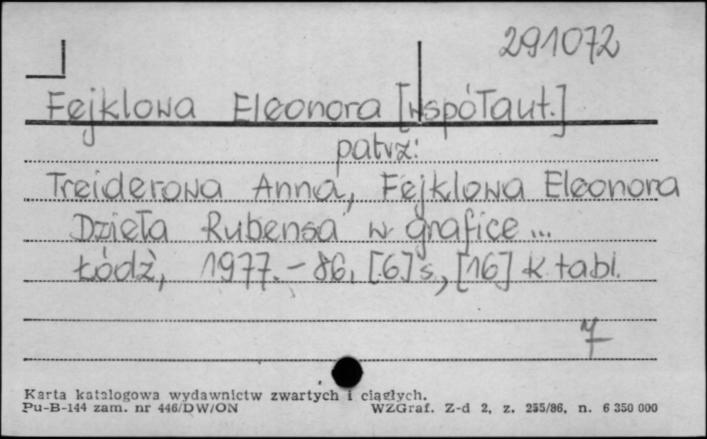 291072
Fejklowa Eleonora [współaut.]
patrz:
Treiderowa Anna, Fejklowa Eleonora
Dzieła Rubensa w grafice...
Łódź, 1977. - 86, [6] s, [16] k. tabl.
7
Karta katalogowa wydawnictw zwartych i ciągłych.
Pu-B-144 zam. nr 446/DW/ON WZGraf. Z-d 2, z. 255/86, n. 6 350 000